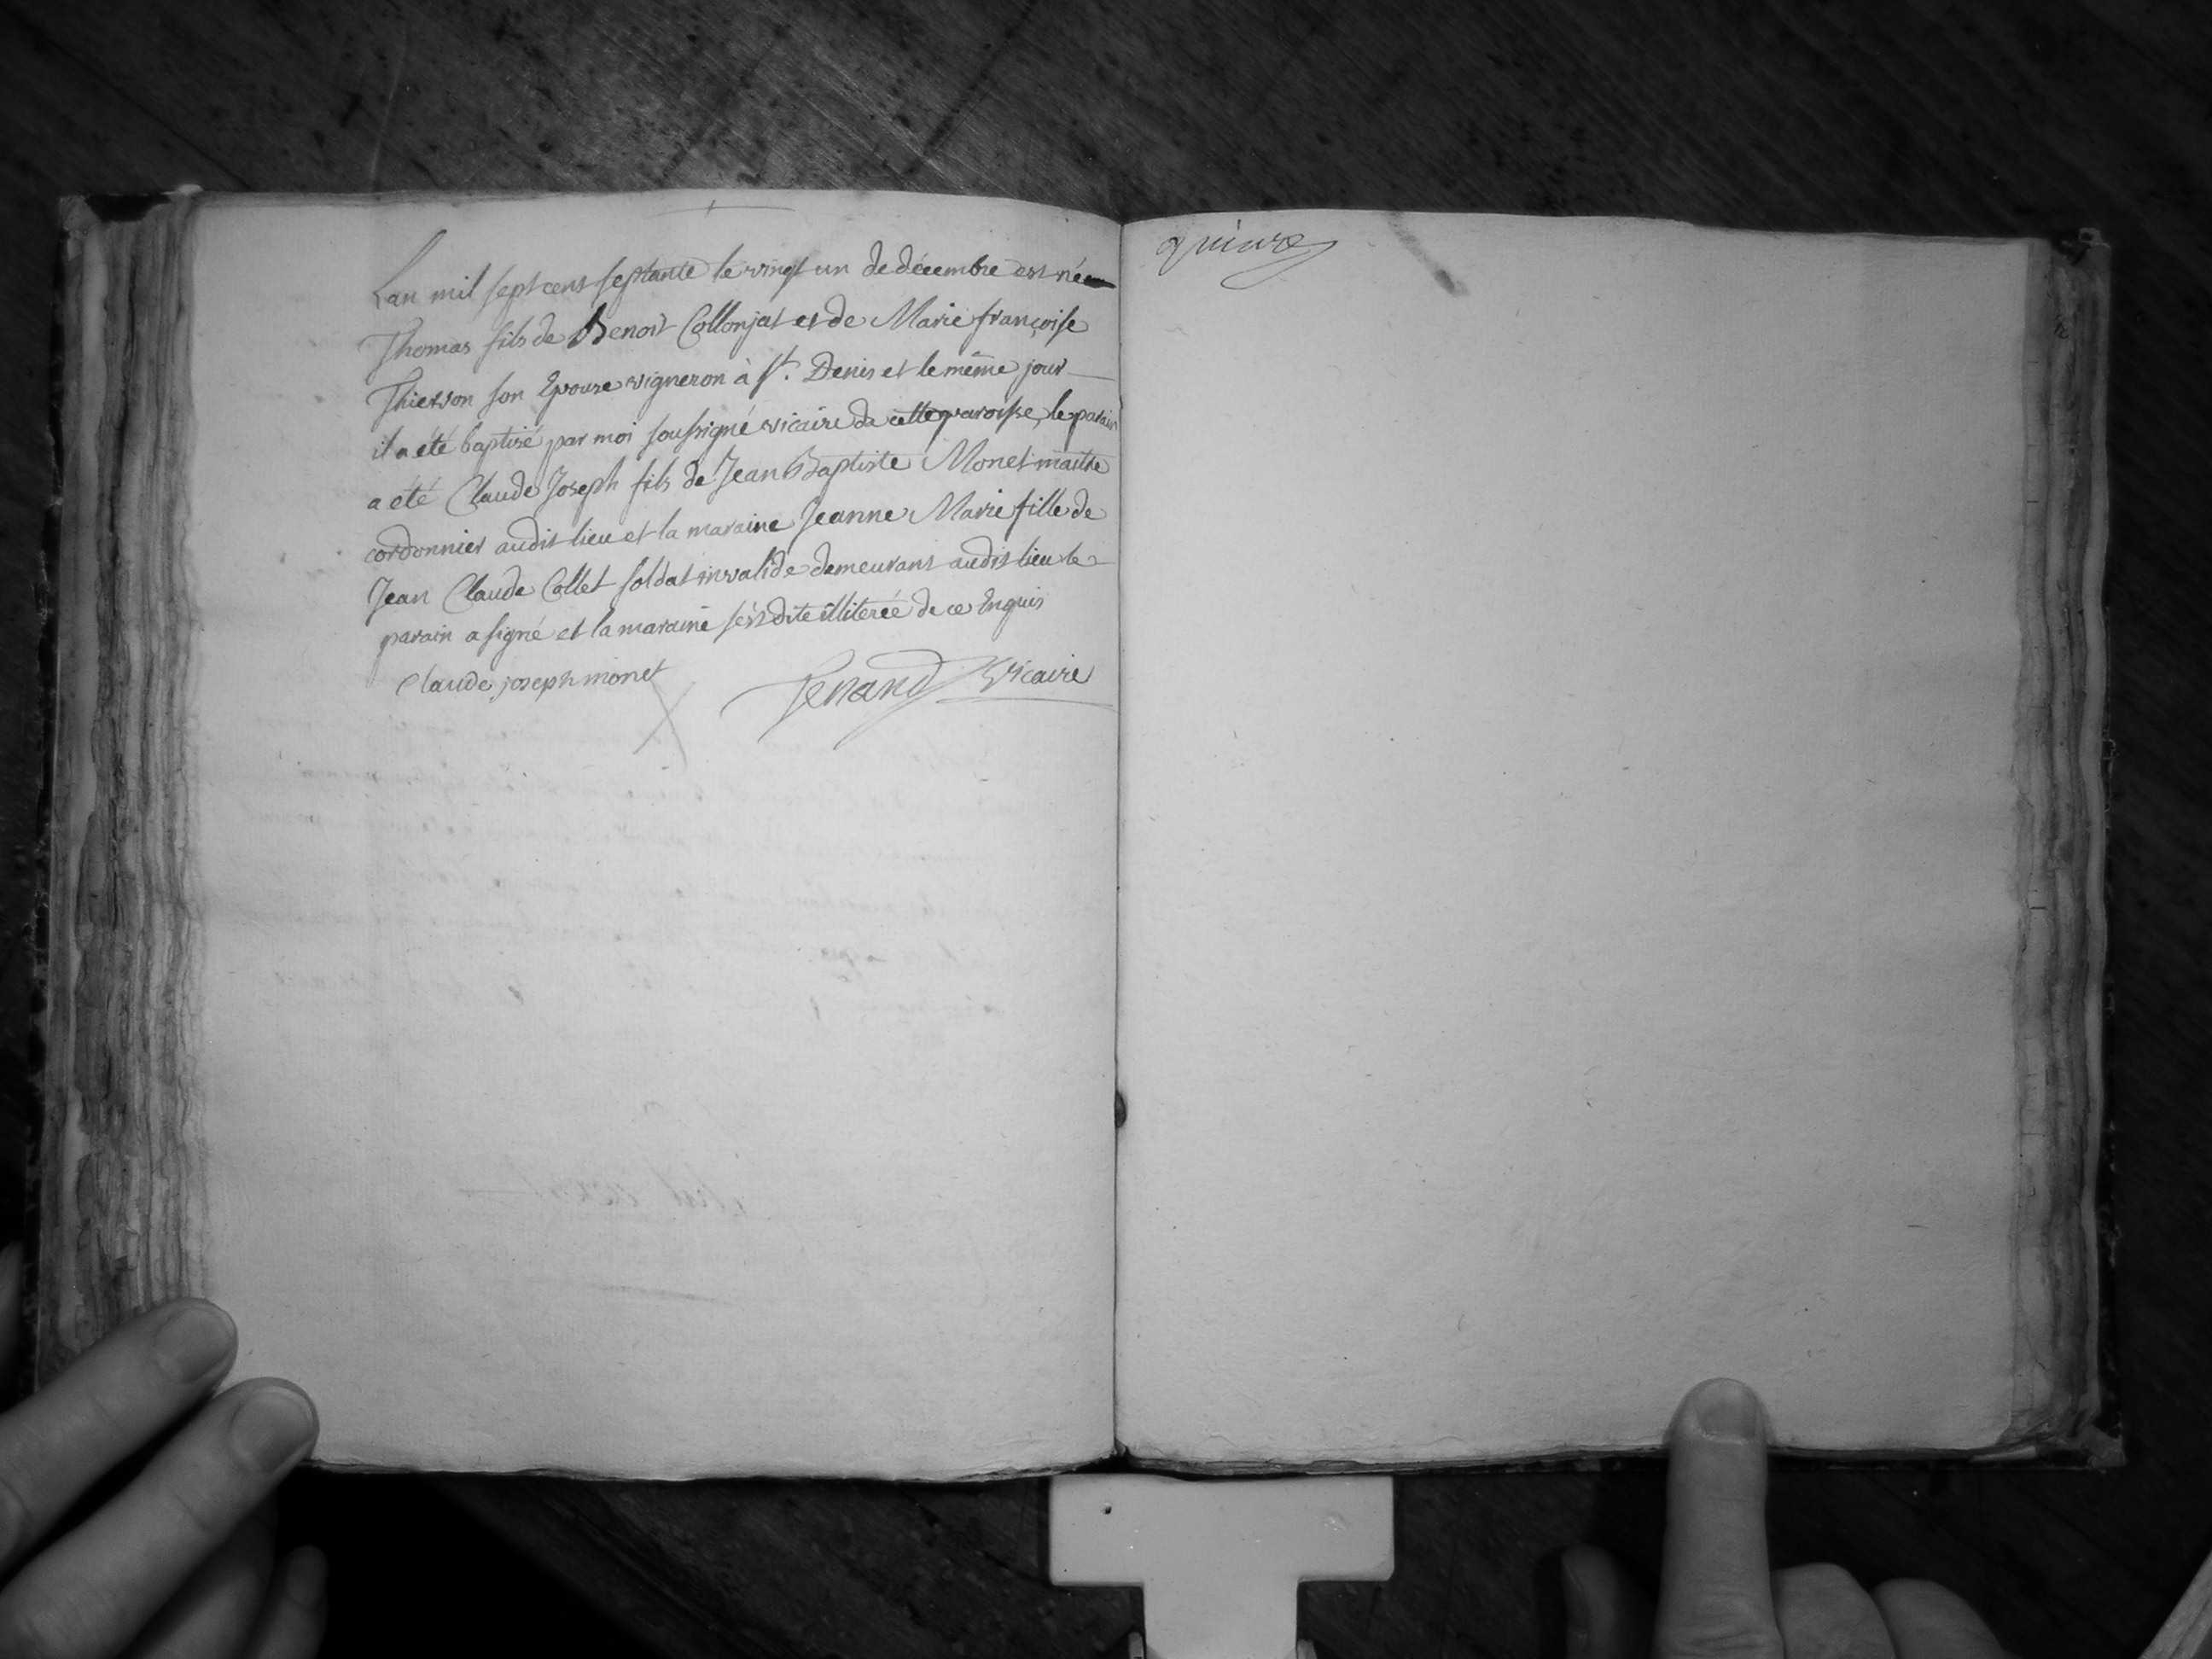 Lan mil sept cens septante le vingt un de décembre est né
Thomas fils de Benoit Collonjat et de Marie françoise
Thierson son Epouse vigneron à St. Denis et le même jour
il a été baptisé par moi soussigné vicaire de cette paroisse, le parain
a été Claude Joseph fils de Jean Baptiste Monet maitre
cordonnier audit lieu et la maraine Jeanne Marie fille de
Jean Claude Collet soldat invalide demeurant audit lieu le
parain a signé et la maraine s'est dite illiterée de ce Enquis
Claude joseph monet
Renand Vicaire
quinze